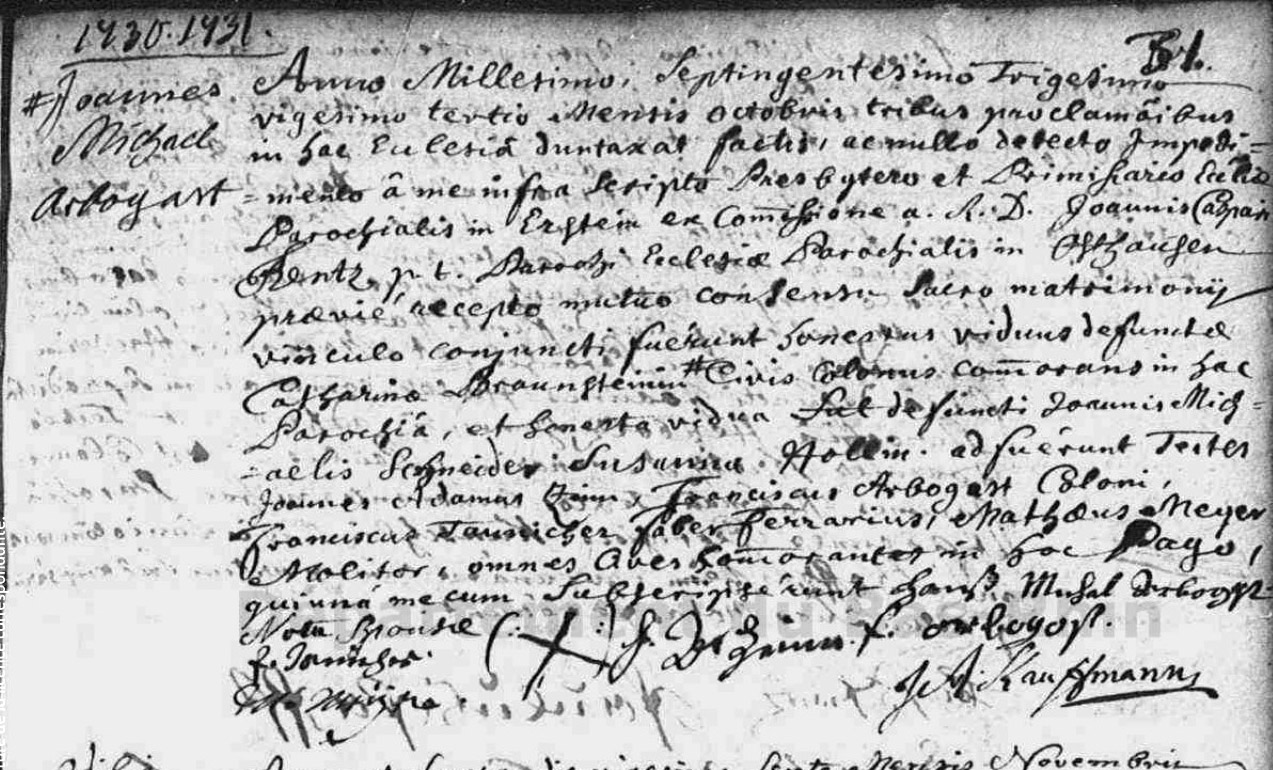 1730. 1731.
51.
# Joannes
Michael
Arbogast
Anno Millesimo, Septingentesimo Trigesimo
vigesimo tertio Mensis octobris tribus proclamãibus
in hac Ecclesiâ duntaxat factis, ac nullo detecto Impedi=
=mento â me infra Scripto Presbytero et Primissario Ecclīæ
Parochialis in Erstein ex Com̃issione a. R. D. Joannis Caspari
Rentz p. t. Parochi Ecclesiæ Parochialis in Osthausen
prævié recepto mutuo consensu Sacro matrimonij
vinculo conjuncti fuérunt honestus viduus defunctæ
Catharinæ Braunsteinin # Civis Colonus com̃orans in hac
Parochiâ, et honesta vidua defuncti Joannis Mich=
=aelis Schneider Susanna Hollin. adfuérunt Testes
Joannes Adamus Zinn, Franciscus Arbogast Coloni,
Franciscus Taunicher faber ferrarius, Mathæus Meyer
Molitor, omnes Cives com̃orantes in hoc Pago,
qui unà mecum Subscripsérunt hanß Michal Arbogast
Nota Sponsæ (: X :) J. Ad Zinn. f. arbogost.
J. A. Kauffmann
Novembris